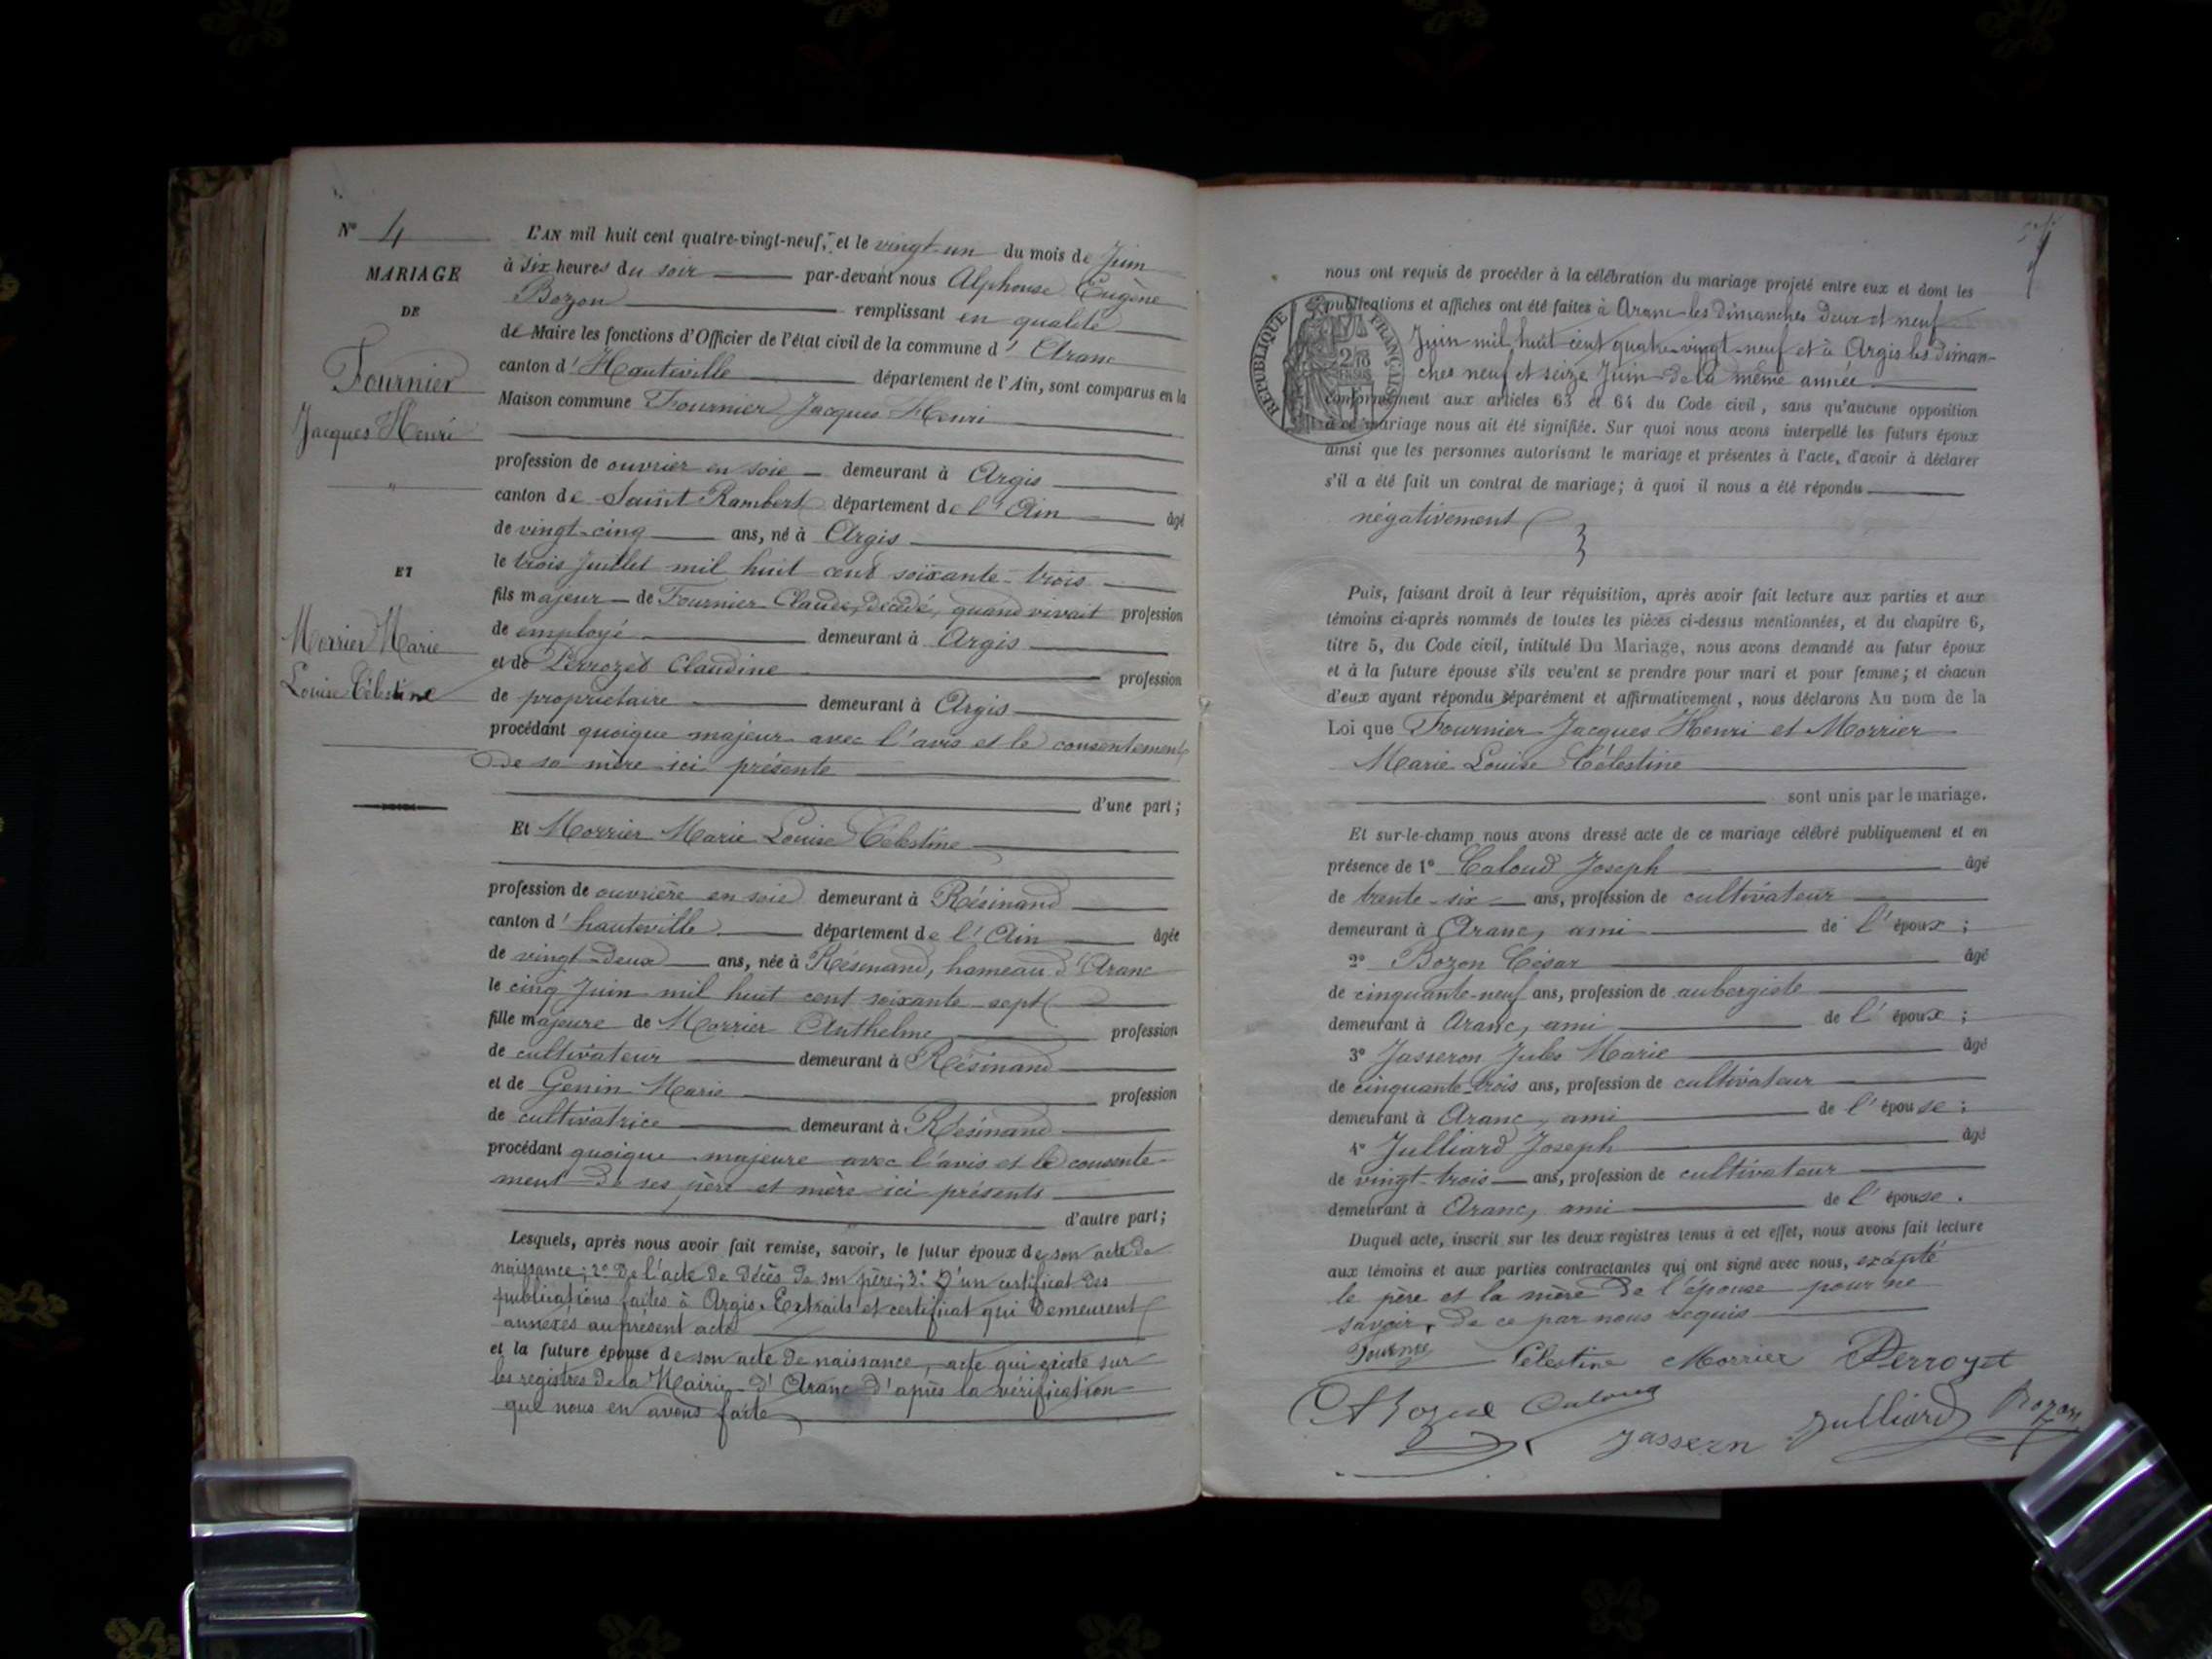 N° 4
MARIAGE
DE
Fournier
Jacques Henri
"
ET
Morrier Marie
Louise Célestine
L'AN mil huit cent quatre-vingt-neuf, et le vingt-un du mois de Juin
à six heures du soir par-devant nous Alphonse Eugène
Bozon remplissant en qualité
de Maire les fonctions d'Officier de l'état civil de la commune d' Aranc
canton d' Hauteville département de l'Ain, sont comparus en la
Maison commune Fournier Jacques Henri
profession de ouvrier en soie demeurant à Argis
canton de Saint Rambert département de l'Ain âgé
de vingt-cinq ans, né à Argis
le trois Juillet mil huit cent soixante-trois
fils majeur de Fournier Claude, décédé, quand vivait profession
de employé demeurant à Argis
et de Perrozet Claudine profession
de propriétaire demeurant à Argis
procédant quoique majeur avec l'avis et le consentement
de sa mère ici présente
d'une part;
Et Morrier Marie Louise Célestine
profession de ouvrière en soie demeurant à Résinand
canton d' hauteville département de l'Ain âgée
de vingt-deux ans, née à Résinand, hameau d'Aranc
le cinq Juin mil huit cent soixante-sept
fille majeure de Morrier Anthelme profession
de cultivateur demeurant à Résinand
et de Genin Marie profession
de cultivatrice demeurant à Résinand
procédant quoique majeure avec l'avis et le consente-
ment de ses père et mère ici présents
d'autre part;
Lesquels, après nous avoir fait remise, savoir, le futur époux de son acte de
naissance; 2° de l'acte de décès de son père; 3° D'un certificat des
publications faites à Argis. Extraits et certificat qui demeurent
annexés au présent acte
et la future épouse de son acte de naissance, acte qui existe sur
les registres de la Mairie d'Aranc d'après la vérification
que nous en avons faite
nous ont requis de procéder à la célébration du mariage projeté entre eux et dont les
publications et affiches ont été faites à Aranc les dimanches deux et neuf
Juin mil huit cent quatre-vingt-neuf et à Argis les diman-
ches neuf et seize Juin de la même année
RÉPUBLIQUE FRANÇAISE
conformément aux articles 63 et 64 du Code civil, sans qu'aucune opposition
à ce mariage nous ait été signifiée. Sur quoi nous avons interpellé les futurs époux
ainsi que les personnes autorisant le mariage et présentes à l'acte, d'avoir à déclarer
s'il a été fait un contrat de mariage; à quoi il nous a été répondu
négativement
Puis, faisant droit à leur réquisition, après avoir fait lecture aux parties et aux
témoins ci-après nommés de toutes les pièces ci-dessus mentionnées, et du chapitre 6,
titre 5, du Code civil, intitulé Du Mariage, nous avons demandé au futur époux
et à la future épouse s'ils veu'ent se prendre pour mari et pour femme; et chacun
d'eux ayant répondu séparément et affirmativement, nous déclarons Au nom de la
Loi que Fournier Jacques Henri et Morrier
Marie Louise Célestine
sont unis par le mariage.
Et sur-le-champ nous avons dressé acte de ce mariage célébré publiquement et en
présence de 1° Caloud Joseph âgé
de trente-six ans, profession de cultivateur
demeurant à Aranc, ami de l'époux;
2° Bozon César âgé
de cinquante-neuf ans, profession de aubergiste
demeurant à Aranc, ami de l'époux;
3° Jasseron Jules Marie âgé
de cinquante-trois ans, profession de cultivateur
demeurant à Aranc, ami de l'épouse;
4° Julliard Joseph âgé
de vingt-trois ans, profession de cultivateur
demeurant à Aranc, ami de l'épouse.
Duquel acte, inscrit sur les deux registres tenus à cet effet, nous avons fait lecture
aux témoins et aux parties contractantes qui ont signé avec nous, exépté
le père et la mère de l'épouse pour ne
savoir, de ce par nous requis
Fournie Célestine Morrier Perrozet
Caloud Julliard Bozon
Jassern